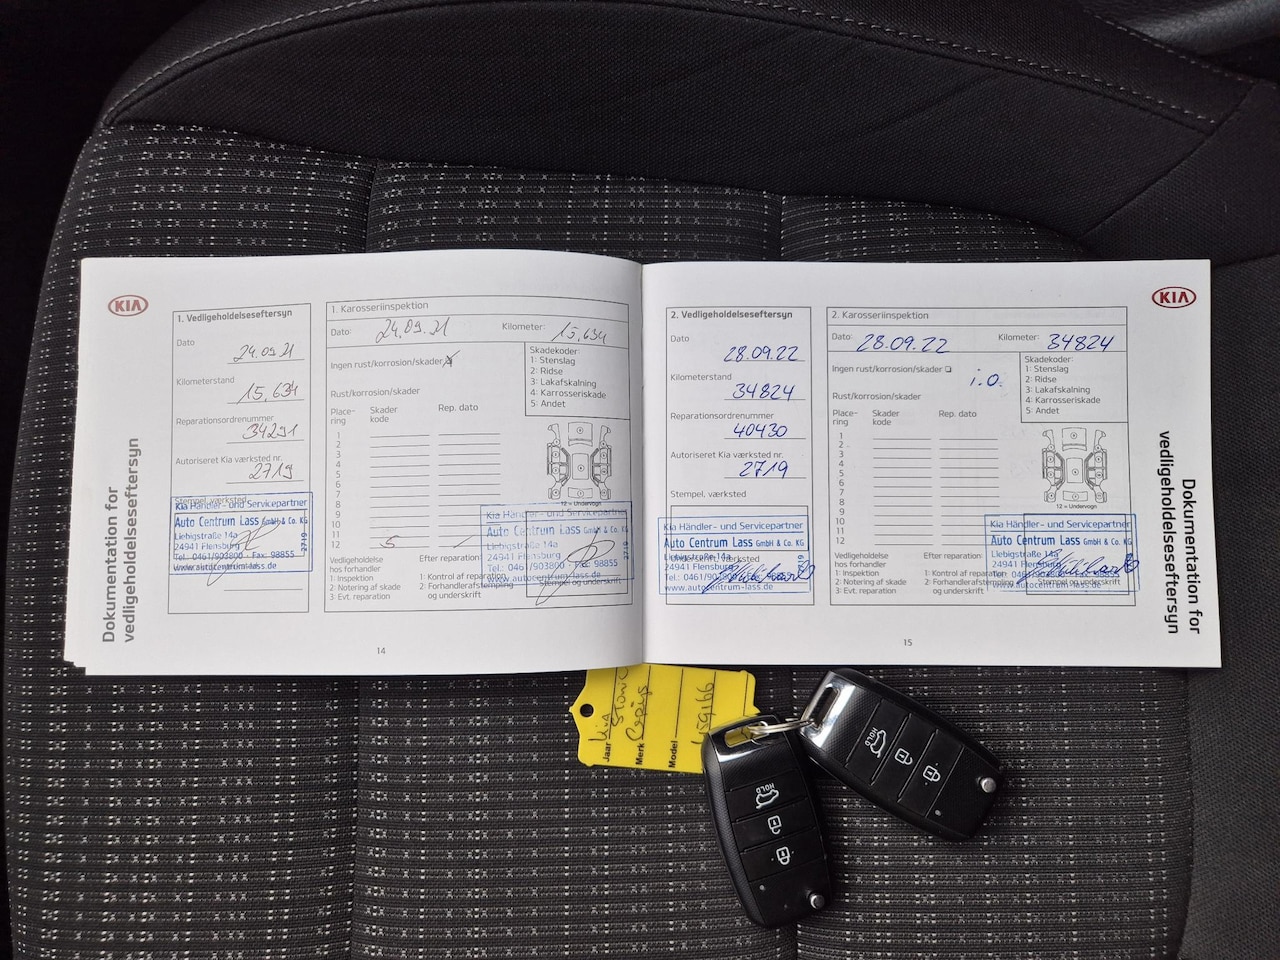 KIA
Dokumentation for
vedligeholdelseseftersyn
1. Vedligeholdelseseftersyn
Dato
24.09.21
Kilometerstand
15.634
Reparationsordrenummer
34291
Autoriseret Kia værksted nr.
2719
Stempel, værksted
Kia Händler- und Servicepartner
Auto Centrum Lass GmbH & Co. KG
Liebigstraße 14a
24941 Flensburg
Tel. 0461/903800 · Fax: 98855
www.autocentrum-lass.de
2719
1. Karosseriinspektion
Dato: 24.09.21 Kilometer: 15.634
Ingen rust/korrosion/skader
Skadekoder:
1: Stenslag
2: Ridse
3: Lakafskalning
4: Karrosseriskade
5: Andet
Rust/korrosion/skader
Place-
ring
Skader
kode
Rep. dato
1
2
3
4
5
6
7
8
9
10
11
12 5
12 = Undervogn
Kia Händler- und Servicepartner
Auto Centrum Lass GmbH & Co. KG
Liebigstraße 14a
24941 Flensburg
Tel.: 0461/903800 · Fax: 98855
www.autocentrum-lass.de
2719
Vedligeholdelse
hos forhandler
1: Inspektion
2: Notering af skade
3: Evt. reparation
Efter reparation:
1: Kontrol af reparation
2: Forhandlerafstempling
og underskrift
Stempel og underskrift
14
KIA
Dokumentation for
vedligeholdelseseftersyn
2. Vedligeholdelseseftersyn
Dato
28.09.22
Kilometerstand
34824
Reparationsordrenummer
40430
Autoriseret Kia værksted nr.
2719
Stempel, værksted
Kia Händler- und Servicepartner
Auto Centrum Lass GmbH & Co. KG
Liebigstraße 14a
24941 Flensburg
Tel.: 0461/90
www.autocentrum-lass.de
Underskrift, værksted
2. Karosseriinspektion
Dato: 28.09.22 Kilometer: 34824
Ingen rust/korrosion/skader i.o.
Skadekoder:
1: Stenslag
2: Ridse
3: Lakafskalning
4: Karrosseriskade
5: Andet
Rust/korrosion/skader
Place-
ring
Skader
kode
Rep. dato
1
2
3
4
5
6
7
8
9
10
11
12
12 = Undervogn
Kia Händler- und Servicepartner
Auto Centrum Lass GmbH & Co. KG
Liebigstraße 14a
24941 Flensburg
www.autocentrum-lass.de
Vedligeholdelse
hos forhandler
1: Inspektion
2: Notering af skade
3: Evt. reparation
Efter reparation:
1: Kontrol af reparation
2: Forhandlerafstempling
og underskrift
Stempel og underskrift
15
Jaar Kia
Merk Stonic
Model
HOLD
HOLD